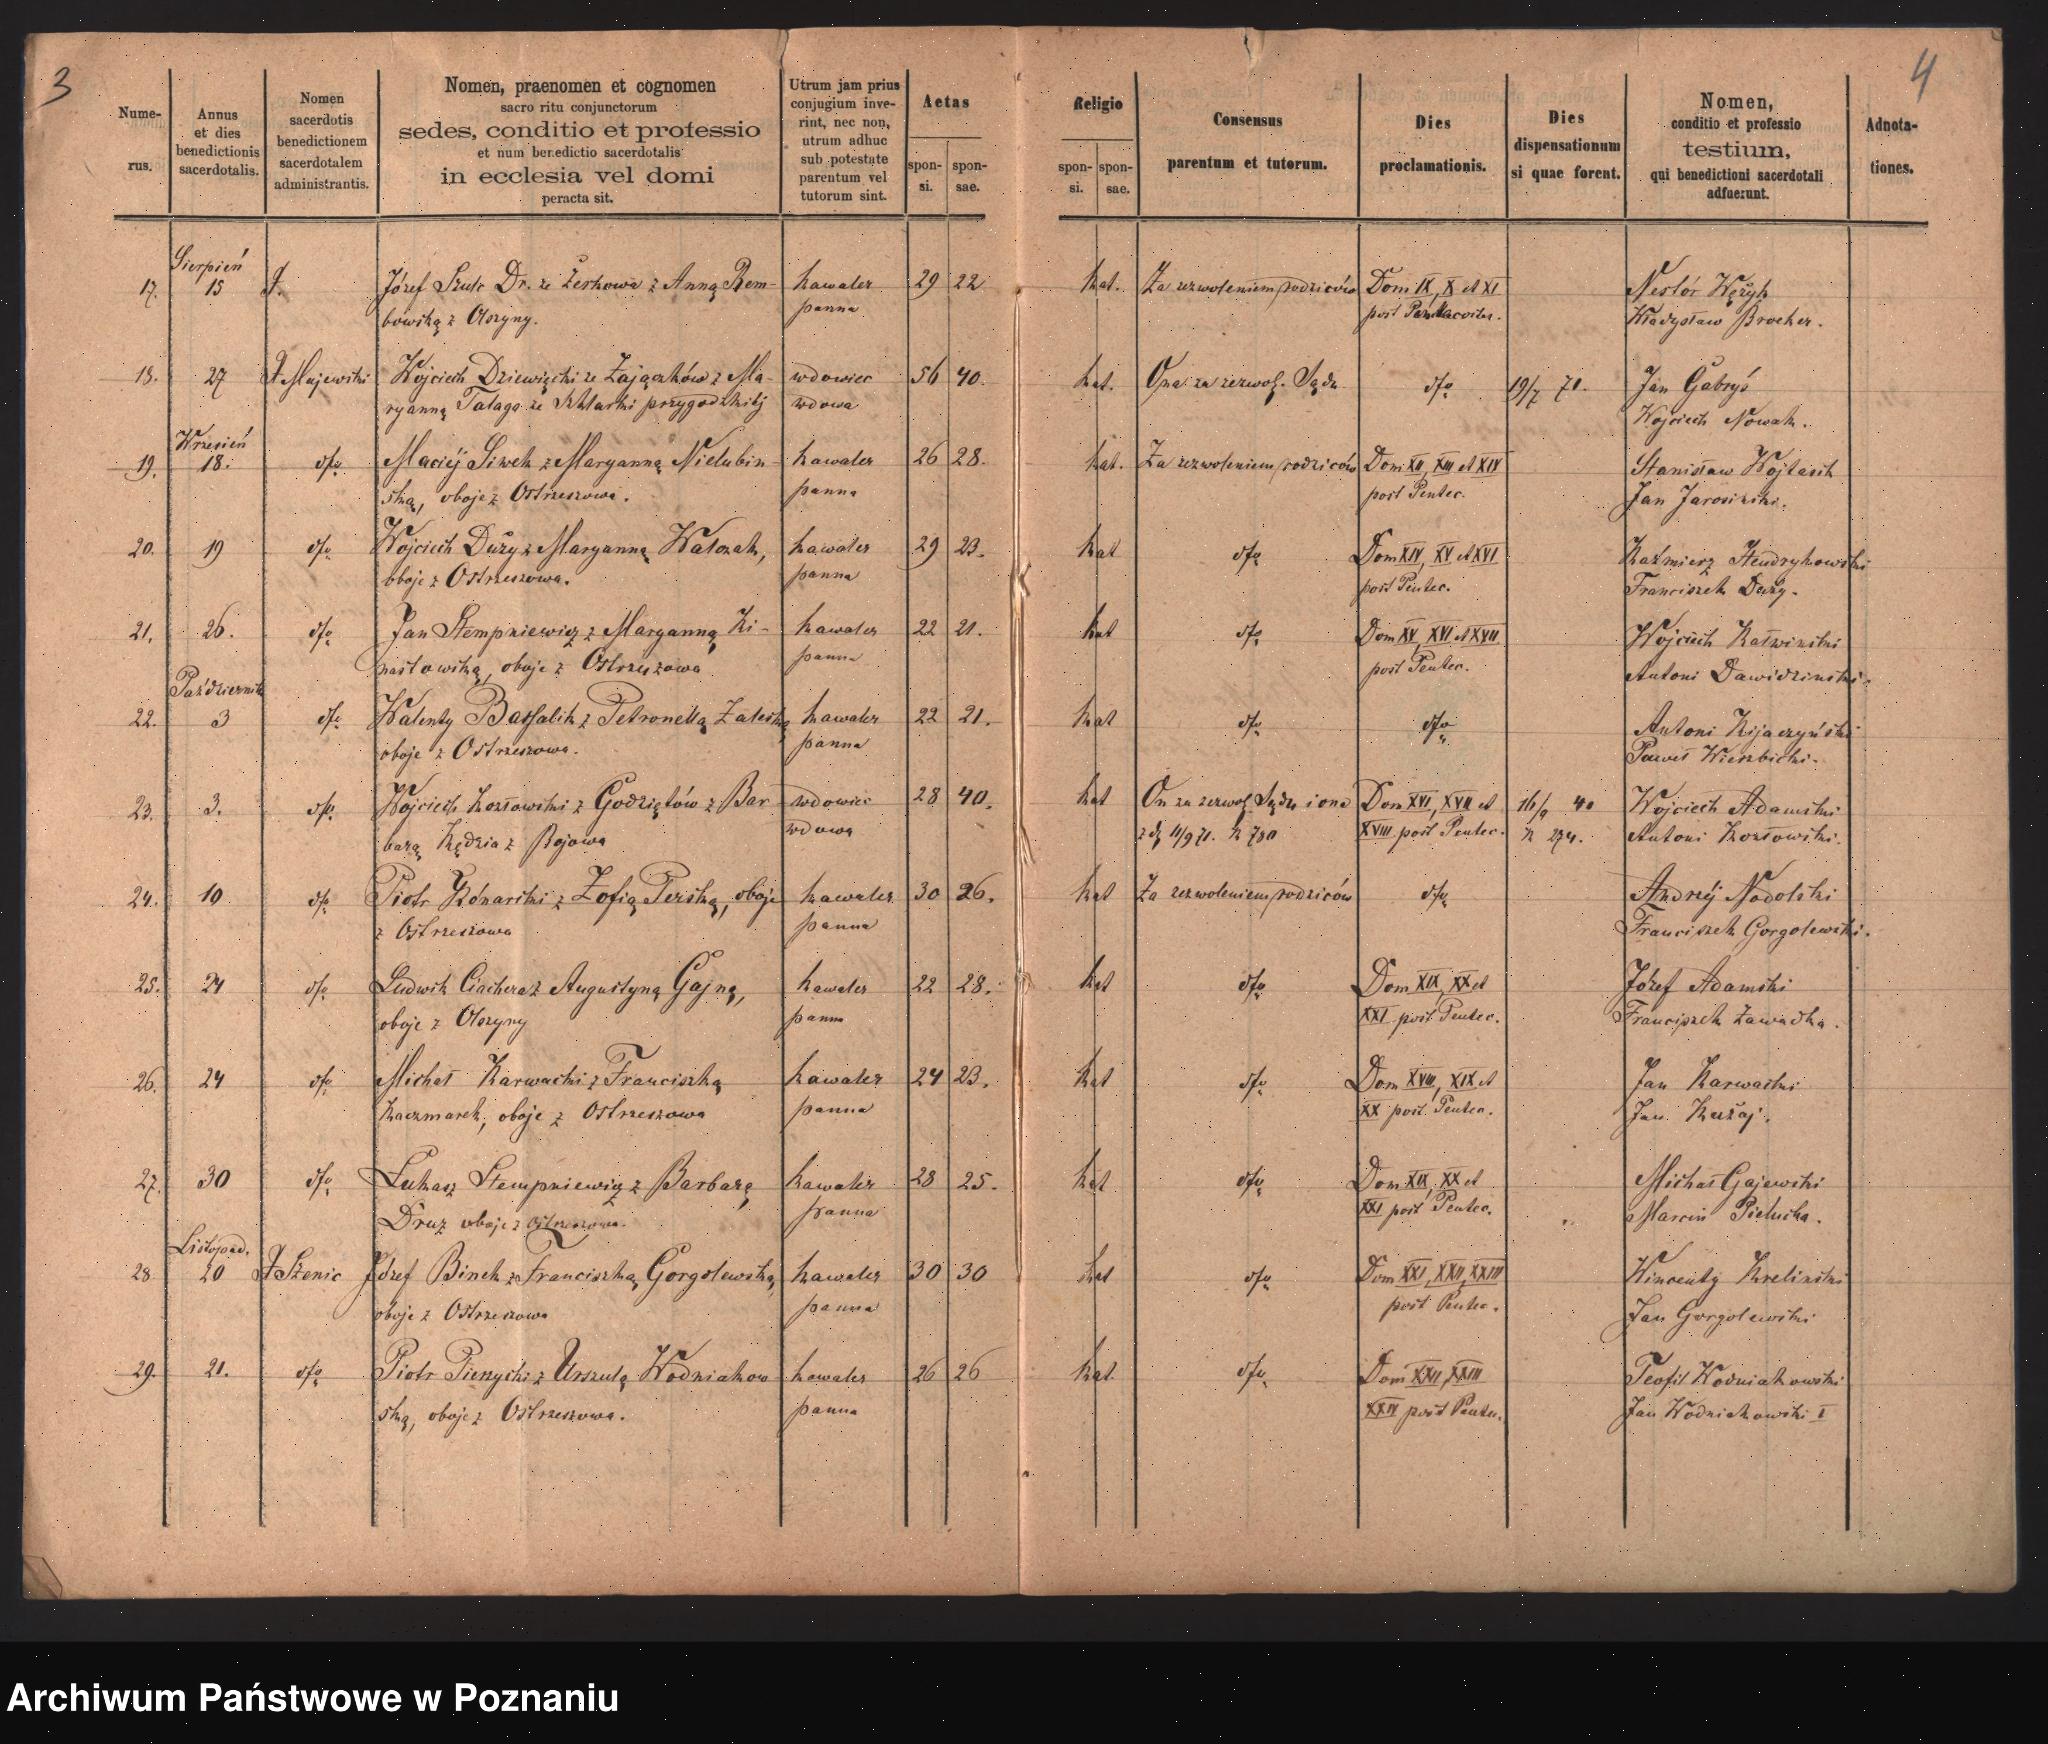 3
4
Nume-
rus.
Annus
et dies
benedictionis
sacerdotalis.
Nomen
sacerdotis
benedictionem
sacerdotalem
administrantis.
Nomen, praenomen et cognomen
sacro ritu conjunctorum
sedes, conditio et professio
et num benedictio sacerdotalis
in ecclesia vel domi
peracta sit.
Utrum jam prius
conjugium inve-
rint, nec non,
utrum adhuc
sub potestate
parentum vel
tutorum sint.
Aetas
spon-
si.
spon-
sae.
Religio
spon-
si.
spon-
sae.
Consensus
parentum et tutorum.
Dies
proclamationis.
Dies
dispensationum
si quae forent.
Nomen,
conditio et professio
testium,
qui benedictioni sacerdotali
adfuerunt.
Adnota-
tiones.
Sierpień
17. 15 Józef Szulc Dr. ze Żerkowa z Anną Rem- kawaler 29 22 kat. Za zezwoleniem rodziców Dom IX, X et XI Nestór Wężyk
bowską z Olszyny. panna post Władysław Brocker.
18. 27 Majewski Wojciech Dziewięcki ze Zajączków z Ma- wdowiec 56 40. kat. Ona za zezwol. Sądu dto 19/7 70. Jan Gabryś
ryanną Talaga ze Szklarki przygodzkiej wdowa Wojciech Nowak.
Wrzesień
19. 18. dto Maciéj Siwek z Maryanną Nielubin- kawaler 26 28. kat. Za zezwoleniem rodziców Dom XII, XIII et XIV Stanisław Wojtasik
ską, oboje z Ostrzeszowa. panna post Pentec. Jan Jarosiński.
20. 19 dto Wojciech Duży z Maryanną Walczak, kawaler 29 23. kat dto Dom XIV, XV et XVI Kaźmierz Hendrykowski
oboje z Ostrzeszowa. panna post Pentec. Franciszek Duży.
21. 26. dto Jan Stempniewicz z Maryanną Ki- kawaler 22 21. kat dto Dom XV, XVI et XVII Wojciech
nastowską, oboje z Ostrzeszowa panna post Pentec. Antoni Dawidziński.
Październik
22. 3 dto Walenty z Petronellą Zaleską kawaler 22 21. kat dto dto Antoni Kijaczyński
oboje z Ostrzeszowa. panna Paweł Wierzbicki.
23. 3. dto Wojciech Kozłowski z Godziętów z Bar wdowiec 28 40. kat On za zezwol Sądu i ona Dom XVI, XVII et 16/9 Wojciech Adamski
barą Kędzia z Rojowa wdowa z d. 11/9 71. N 780 XVIII post Pentec. N 274. Antoni Kozłowski.
24. 10 dto Piotr Kónarski z Zofią Perską, oboje kawaler 30 26. kat Za zezwoleniem rodziców dto Andrzéj Nadolski
z Ostrzeszowa panna Franciszek Gorgolewski.
25. 24 dto Ludwik Ciachera z Augustyną Gajną, kawaler 22 28. kat dto Dom XIX, XX et Józef Adamski
oboje z Olszyny panna XXI post Pentec. Franciszek Zawadka.
26. 24 dto Michał Karwacki z Franciszką kawaler 24 23. kat dto Dom XVIII, XIX et Jan Karwacki
Kaczmarek, oboje z Ostrzeszowa panna XX post Pentec. Jan Kużaj.
27. 30 dto Łukasz Stempniewicz z Barbarą kawaler 28 25. kat dto Dom XIX, XX et Michał Gajewski
Druz oboje z Ostrzeszowa. panna XXI post Pentec. Marcin Pielucha.
Listopad.
28 20 Szenic Józef Binek z Franciszką Gorgolewską, kawaler 30 30 kat dto Dom XXI, XXII, XXIII Wincenty Kreliński
oboje z Ostrzeszowa panna post Pentec. Jan Gorgolewski
29. 21. dto Piotr Pierzycki z Urszulą Wodniakow kawaler 26 26 kat dto Dom XXII, XXIII Teofil Wodniakowski
ską, oboje z Ostrzeszowa. panna XXIV post Pentec. Jan Wodniakowski
Archiwum Państwowe w Poznaniu